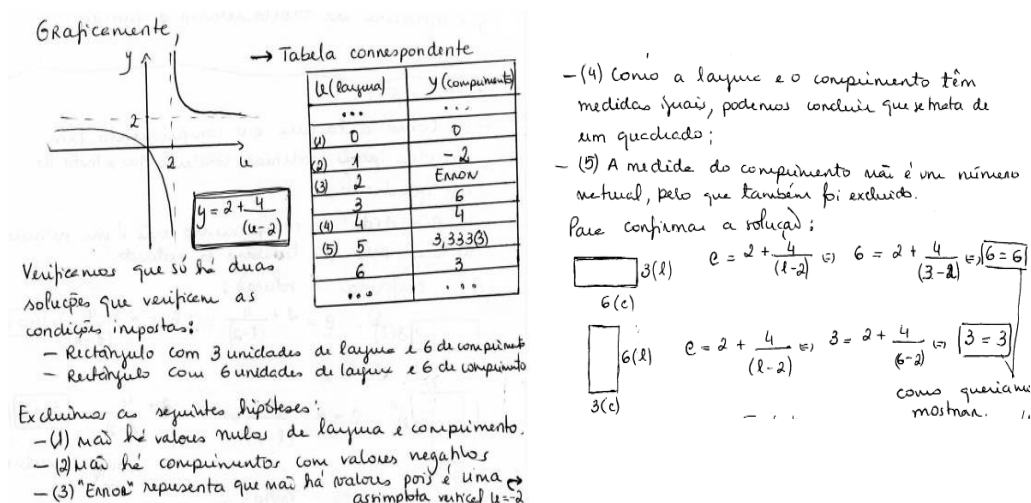 Graficamente,
y
2
2
u
y = 2 + 4/(u-2)
→ Tabela correspondente
u (largura) y (comprimento)
... ...
(1) 0 0
(2) 1 -2
(3) 2 Error
3 6
(4) 4 4
(5) 5 3,333(3)
6 3
... ...
Verificamos que só há duas
soluções que verificam as
condições impostas:
- Rectângulo com 3 unidades de largura e 6 de comprimento
- Rectângulo com 6 unidades de largura e 6 de comprimento
Excluimos as seguintes hipóteses:
- (1) não há valores nulos de largura e comprimento.
- (2) não há comprimentos com valores negativos
- (3) "Error" representa que não há valores pois é uma
assimptota vertical u=-2
- (4) Como a largura e o comprimento têm
medidas iguais, podemos concluir que se trata de
um quadrado;
- (5) A medida do comprimento não é um número
natural, pelo que também foi excluido.
Para confirmar a solução:
3(l) c = 2 + 4/(l-2) ⇔ 6 = 2 + 4/(3-2) ⇔ 6 = 6
6(c)
6(l) c = 2 + 4/(l-2) ⇔ 3 = 2 + 4/(6-2) ⇔ 3 = 3
3(c)
como queriamos
mostrar.